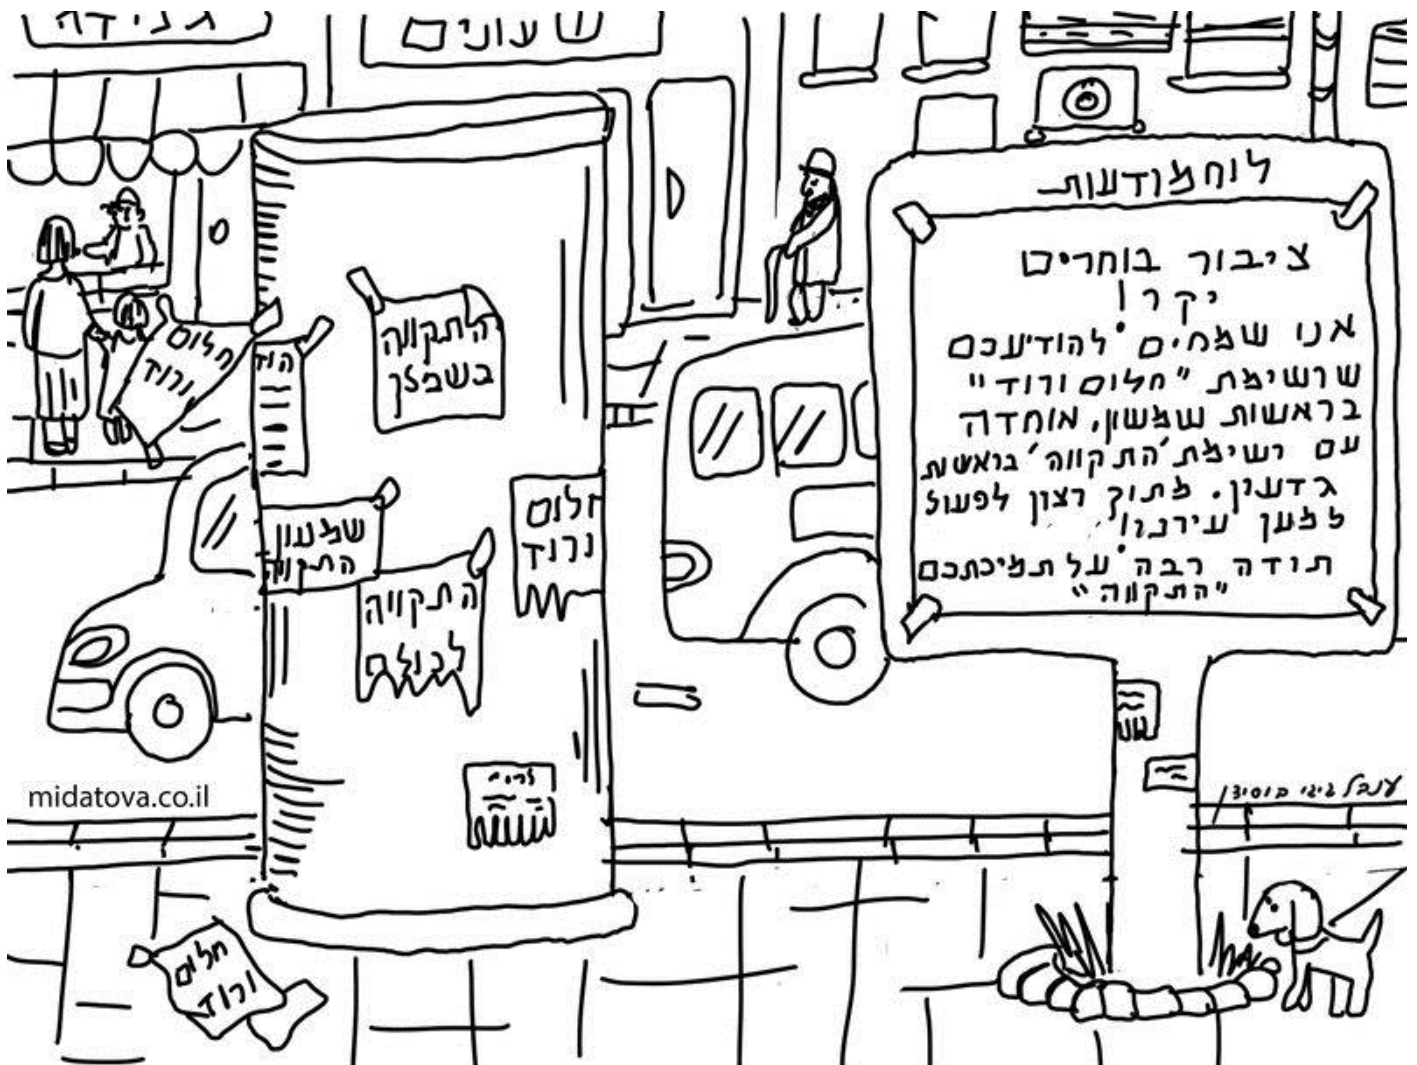 גלידה
שעונים
לוח מודעות
ציבור בוחרים
יקר!
אנו שמחים להודיעכם
שרשימת "חלום ורוד"
בראשות שמשון, אוחדה
עם רשימת 'התקווה' בראשות
גדעון. מתוך רצון לפעול
למען עירנו!
תודה רבה על תמיכתכם
"התקווה"
התקווה
בשבילך
חלום
ורוד
הוד
חלום
ורוד
שמעון
התקווה
התקווה
לכולם
חלום
ורוד
midatova.co.il
ענבל גיגי בוסידן